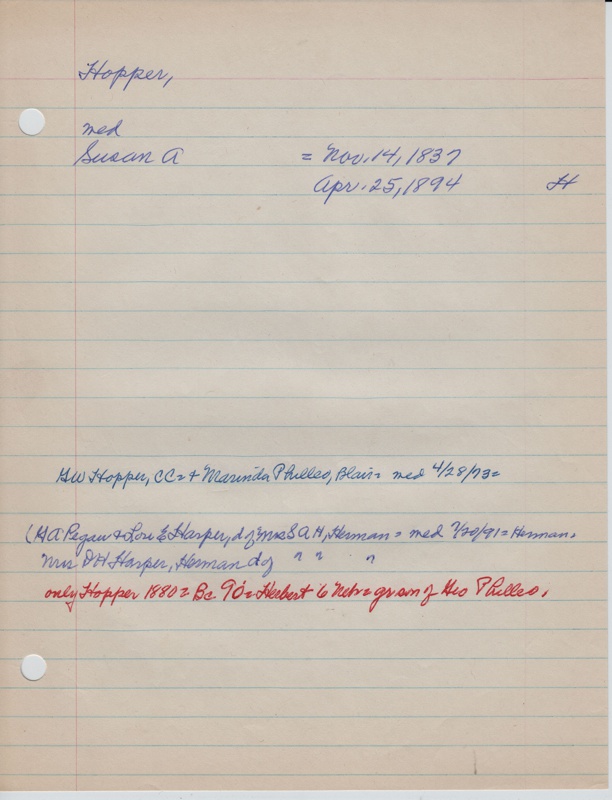 Hopper,
med
Susan A = Nov. 14, 1837
Apr. 25, 1894 H
GW Hopper, CC = + Marinda Philleo, Blair = med 4/28/73 =
(HA Pegau + Lou E Harper, d of Mrs S A H, Herman = med 7/20/91 = Herman.
Mrs D H Harper, Herman d of " " "
only Hopper 1880 = Bc. 90 = Herbert 6 Neb = gr son of Geo Philleo.